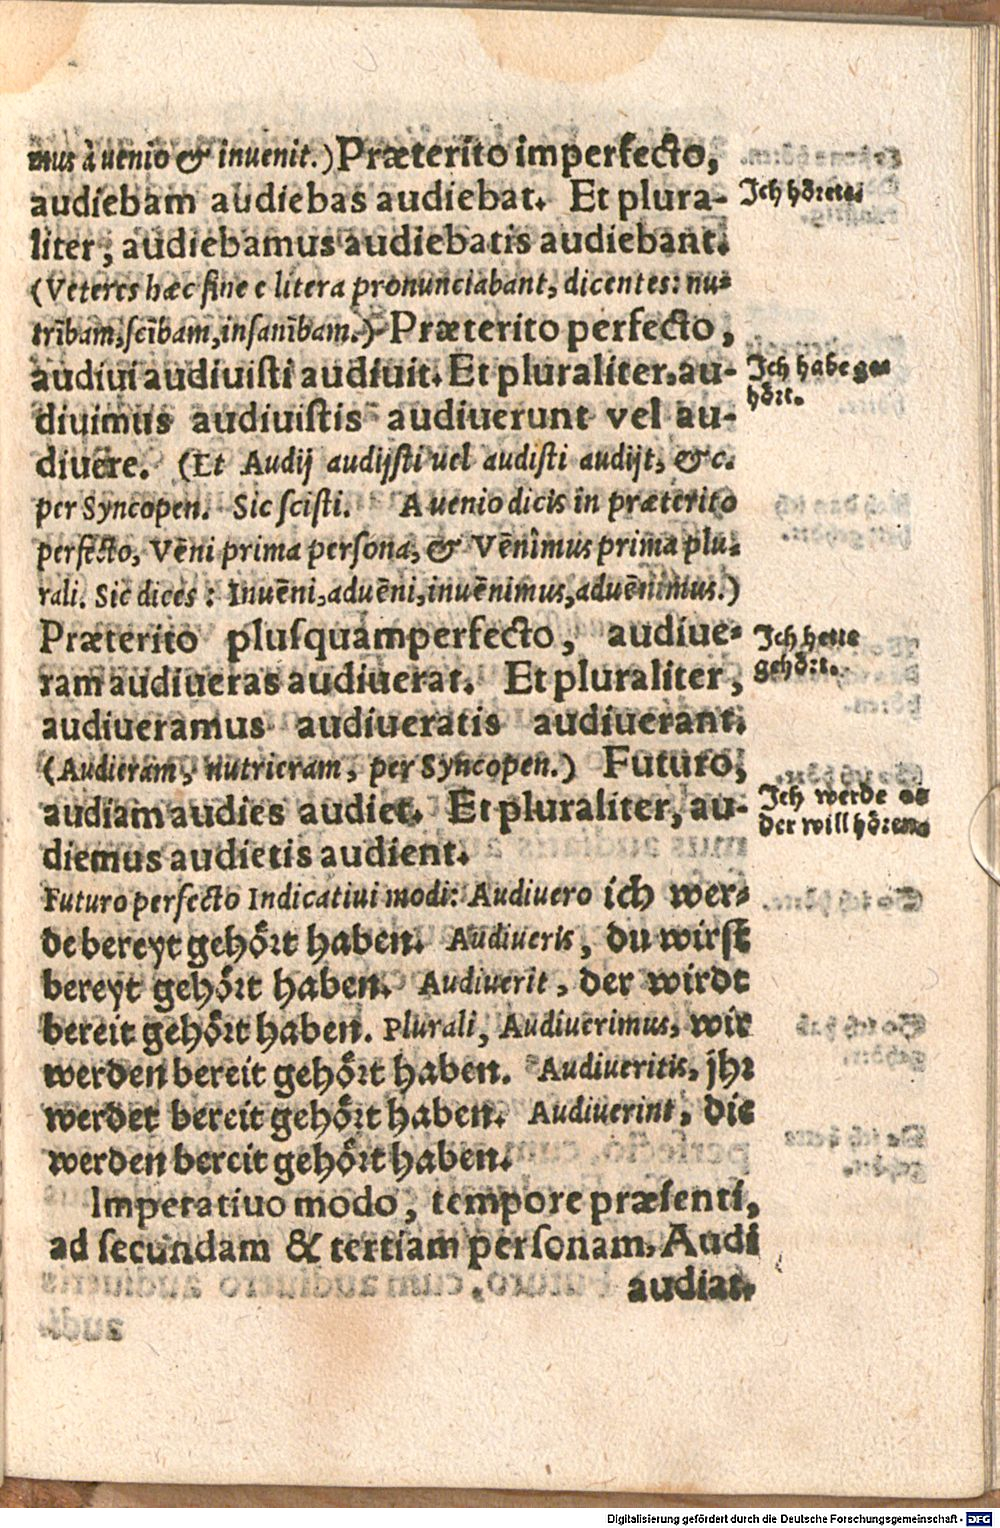 mus à uenio & inuenit.) Præterito imperfecto,
audiebam audiebas audiebat. Et plura-
Ich hörete.
liter, audiebamus audiebatis audiebant.
(Veteres hæc sine e litera pronunciabant, dicentes: nu-
trībam, scībam, insanībam.) Præterito perfecto,
audiui audiuisti audiuit. Et pluraliter. au-
Ich habe ge-
hört.
diuimus audiuistis audiuerunt vel au-
diuere. (Et Audij audijsti uel audisti audijt, &c.
per Syncopen. Sic scisti. A uenio dicis in præterito
perfecto, Vēni prima persona, & Vēnimus prima plu-
rali. Sic dices: Inuēni, aduēni, inuēnimus, aduēnimus.)
Præterito plusquamperfecto, audiue-
Ich hette
gehört.
ram audiueras audiuerat. Et pluraliter,
audiueramus audiueratis audiuerant.
(Audieram, nutrieram, per Syncopen.) Futuro,
audiam audies audiet. Et pluraliter, au-
Ich werde o-
der will hören.
diemus audietis audient.
Futuro perfecto Indicatiui modi: Audiuero ich wer-
de bereyt gehört haben. Audiueris, du wirst
bereyt gehört haben. Audiuerit, der wirdt
bereit gehört haben. Plurali, Audiuerimus, wir
werden bereit gehört haben. Audiueritis, jhr
werdet bereit gehört haben. Audiuerint, die
werden bereit gehört haben.
Imperatiuo modo, tempore præsenti,
ad secundam & tertiam personam, Audi
audiat.
Digitalisierung gefördert durch die Deutsche Forschungsgemeinschaft - DFG